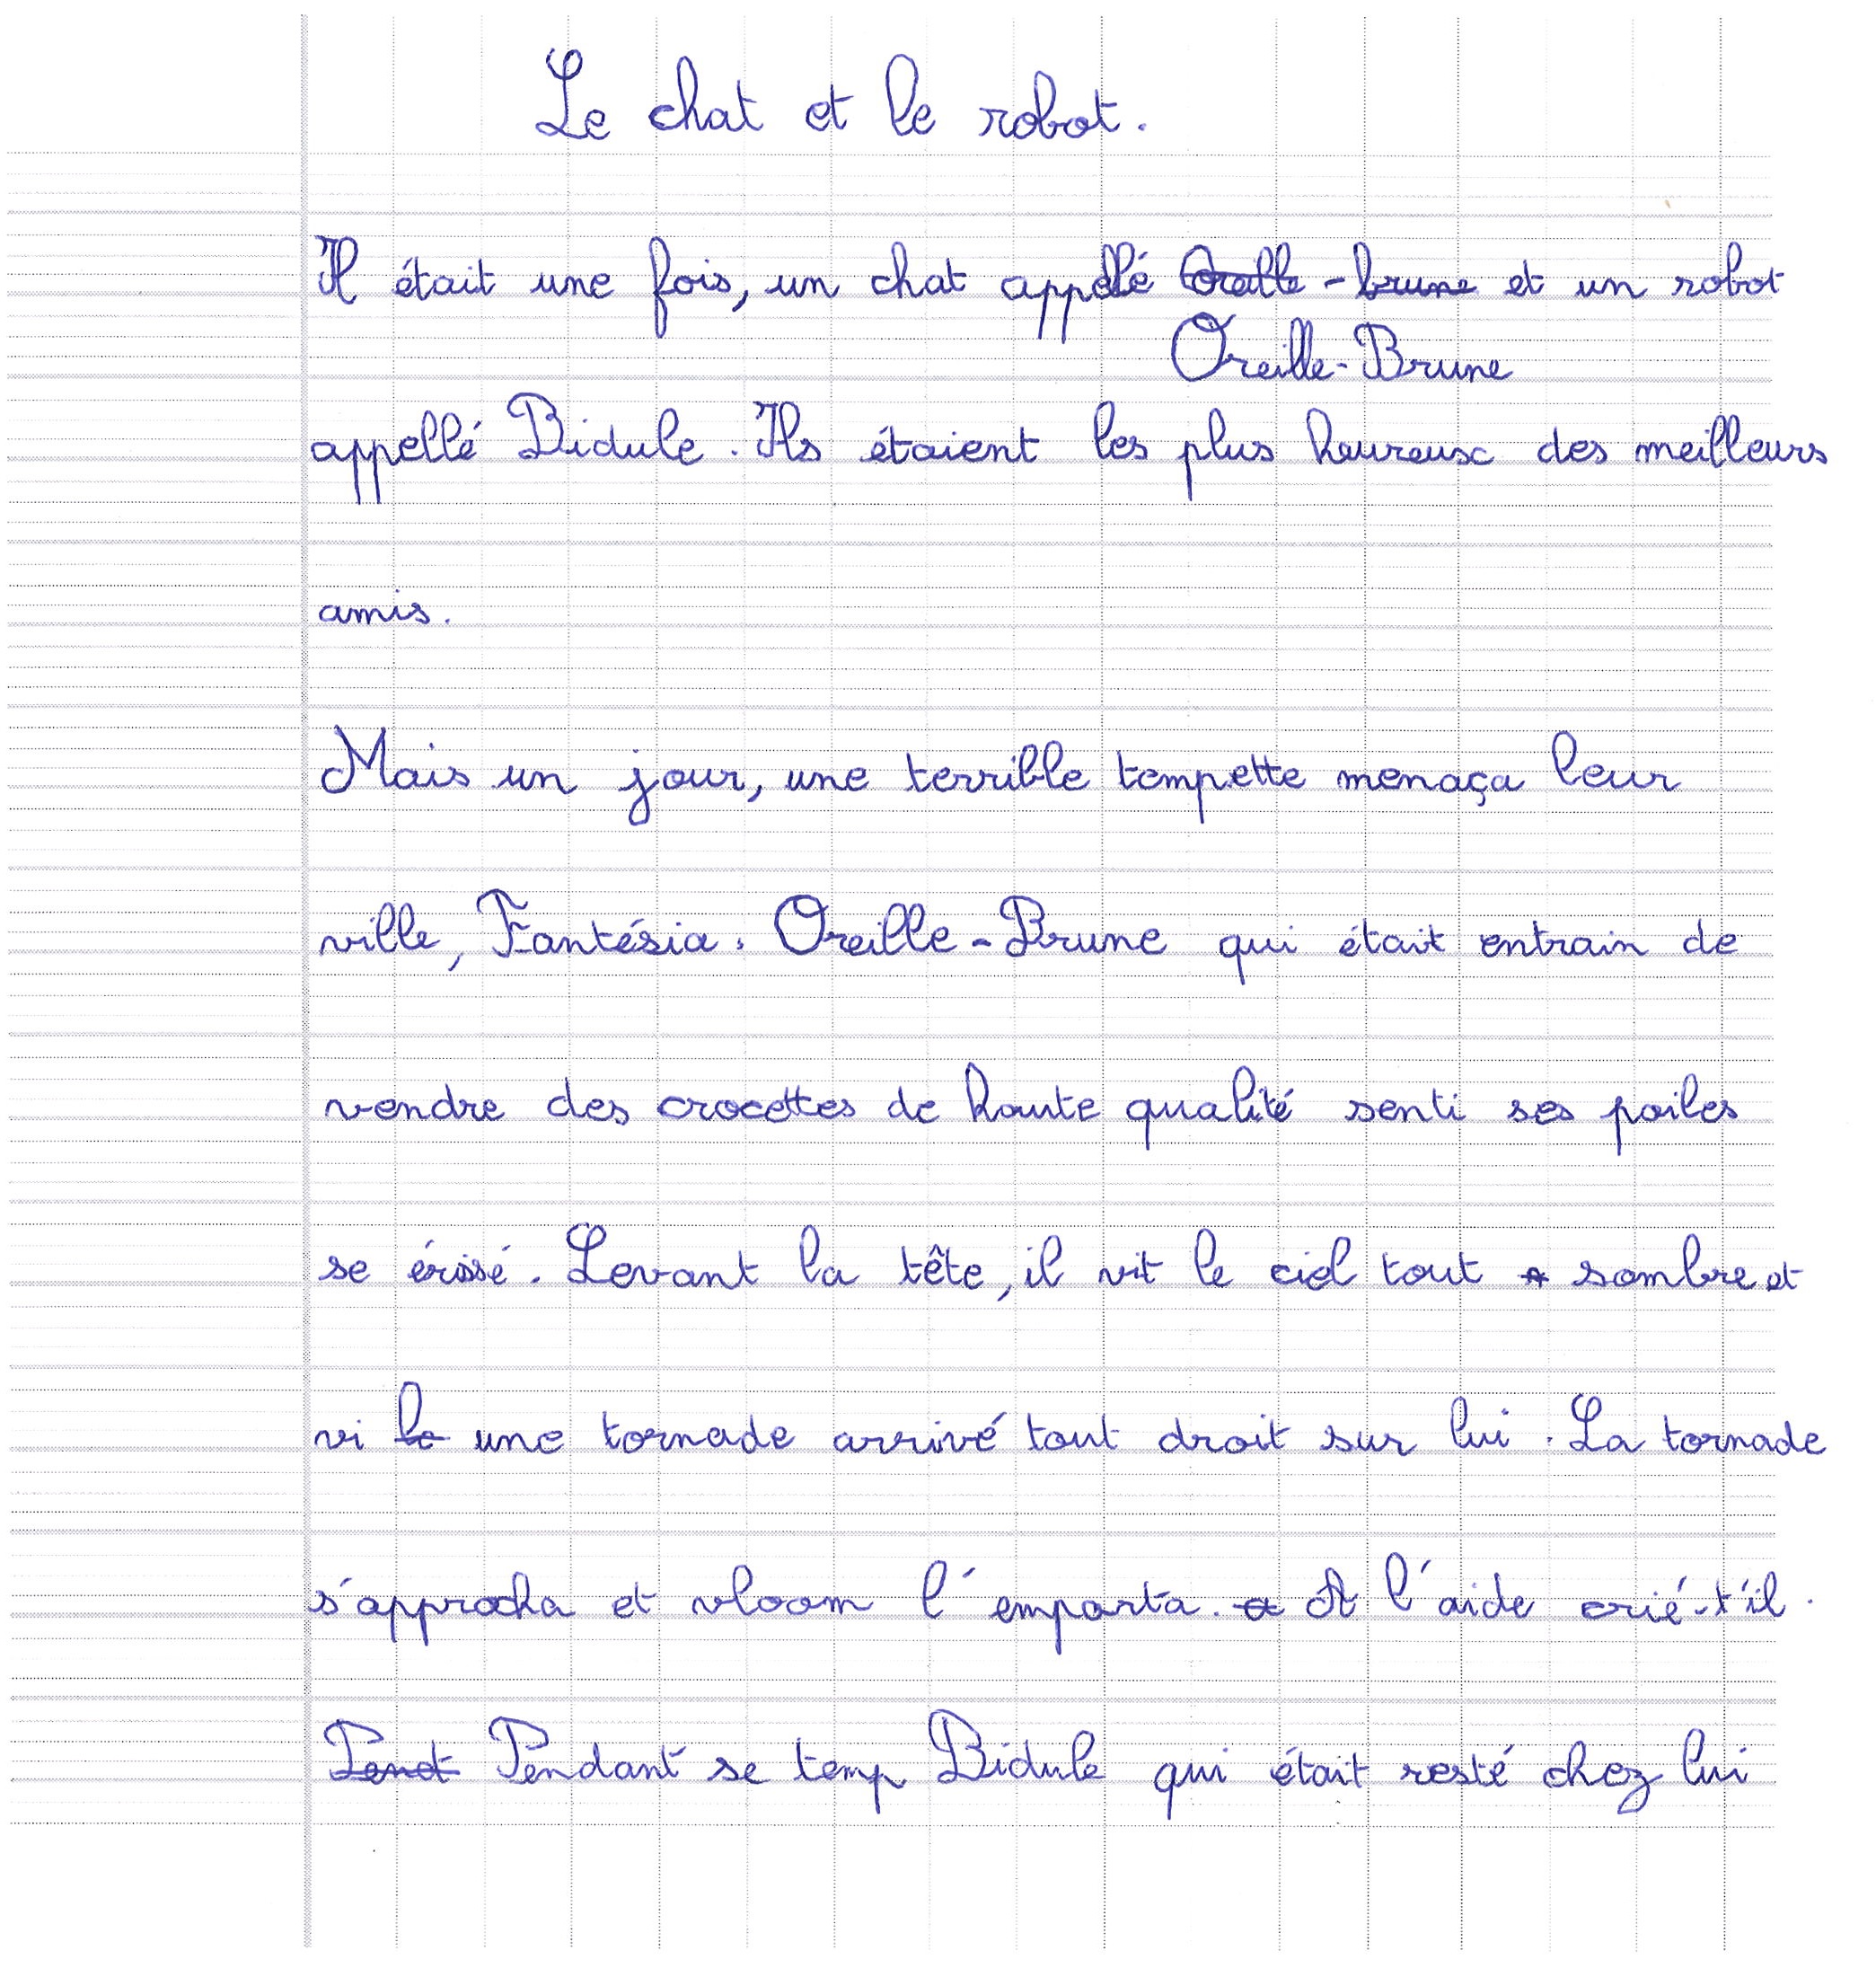 Le chat et le robot.
Il était une fois, un chat appellé Oreille-brune et un robot
Oreille-Brune
appellé Bidule. Ils étaient les plus heureux des meilleurs
amis.
Mais un jour, une terrible tempette menaça leur
ville, Fantésia. Oreille-Brune qui était entrain de
vendre des crocettes de haute qualité senti ses poiles
se érissé. Levant la tête, il vit le ciel tout sombre et
vi le une tornade arrivé tout droit sur lui. La tornade
s'approcha et vloom l'emporta. a A l'aide crié-t'il.
Pend Pendant se temp Bidule qui était resté chez lui